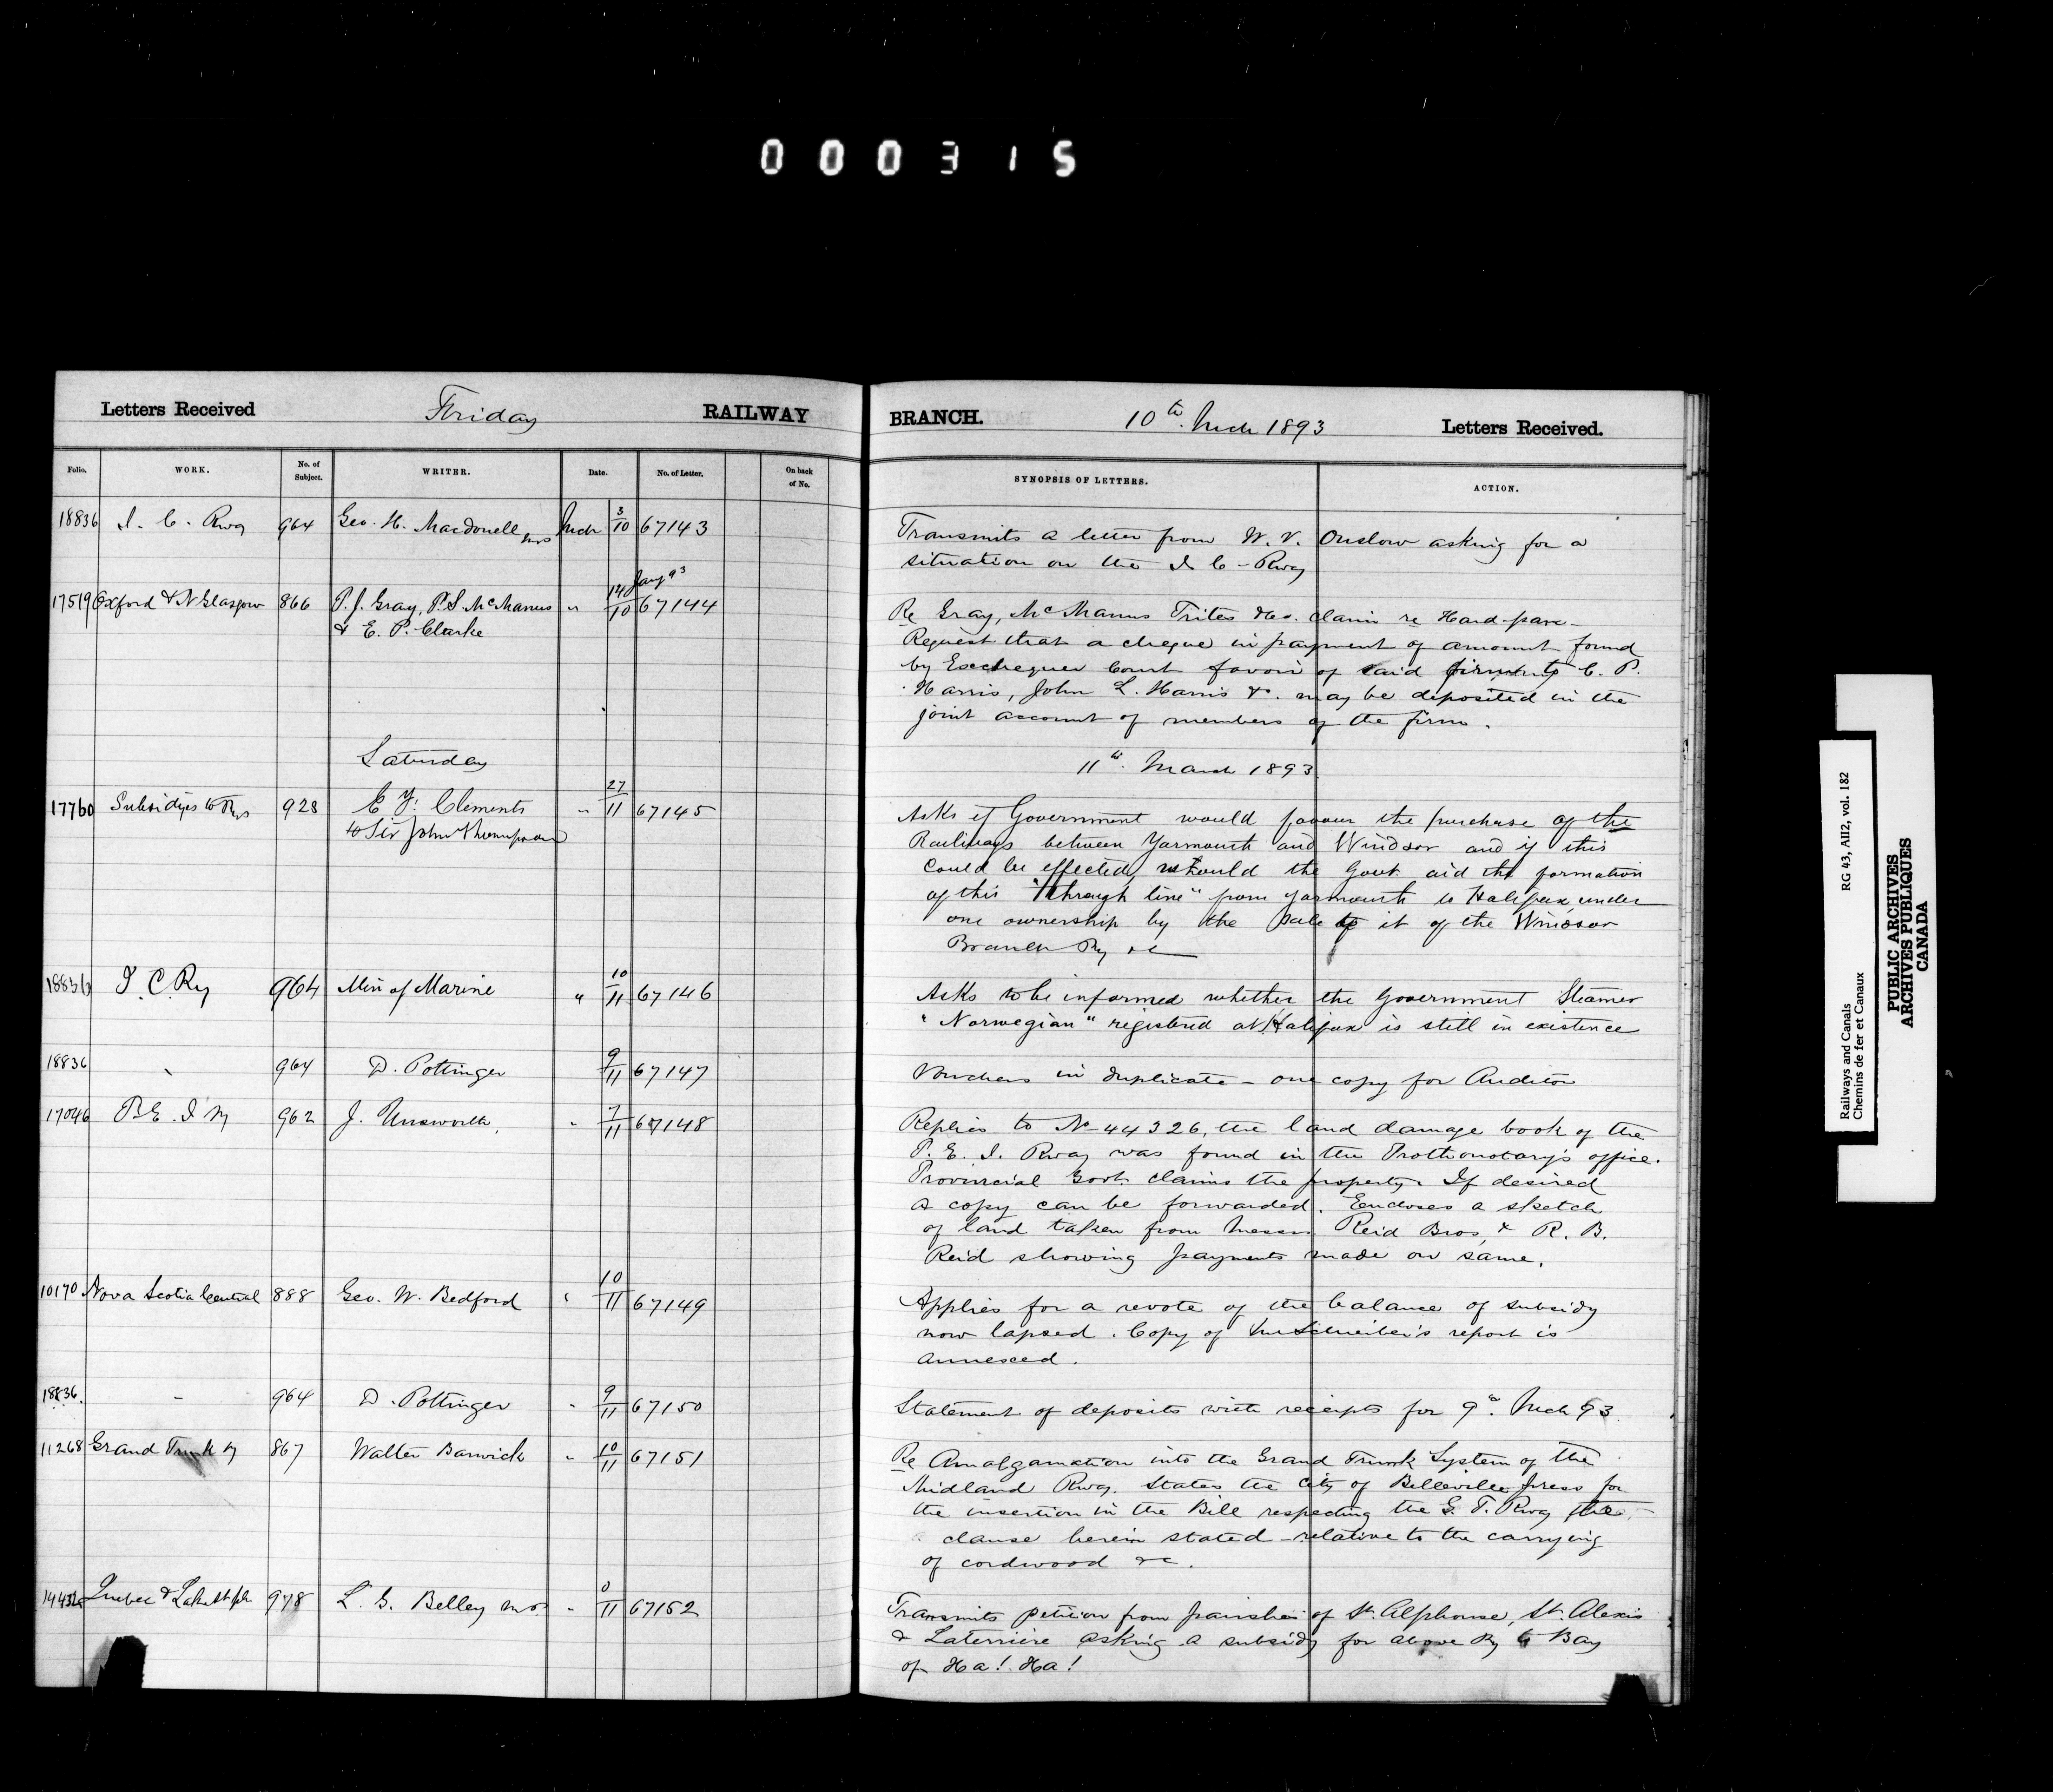 000315
Letters Received Friday RAILWAY BRANCH. 10th. Mch 1893 Letters Received.
Folio. WORK. No. of Subject. WRITER. Date. No. of Letter. On back of No. SYNOPSIS OF LETTERS. ACTION.
18836 I. C. Rwy 964 Geo. H. Macdonell Mch 3/10 67143 Transmits a letter from W. V. Onslow asking for a
situation on the I C - Rwy
17519 Oxford & N Glasgow 866 P. J. Gray, P. S. McManus " 14 Jany 93/10 67144 Re Gray, McManus Trites &co. claim re Hard-pan -
& E. P. Clarke
Request that a cheque in payment of amount found
by Exchequer Court favour of said firm C. P.
Harris, John L. Harris &c. may be deposited in the
joint account of members of the firm.
Saturday 11th. March 1893
17760 Subsidies to Rys 928 E. F. Clements " 27/11 67145 Asks if Government would favour the purchase of the
to Sir John Thompson
Railways between Yarmouth and Windsor and if this
could be effected, would the Govt. aid the formation
of this "through line" from Yarmouth to Halifax, under
one ownership by the sale to it of the Windsor
Branch Ry &c
18836 I. C. Ry 964 Min of Marine " 10/11 67146 Asks to be informed whether the Government Steamer
"Norwegian" registered at Halifax is still in existence
18836 " 964 D. Pottinger 9/11 67147 Vouchers in duplicate - one copy for Auditor
17046 P. E. I Ry 962 J. Unsworth. " 7/11 67148 Replies to No 44326, the land damage book of the
P. E. I. Rway was found in the Prothonotary's office.
Provincial Govt. claims the property. If desired
a copy can be forwarded. Encloses a sketch
of land taken from Messrs. Reid Bros, & R. B.
Reid showing payments made on same.
10170 Nova Scotia Central 888 Geo. W. Bedford " 10/11 67149 Applies for a revote of the balance of subsidy
now lapsed. Copy of Mr Schreiber's report is
annexed.
18836. - 964 D. Pottinger " 9/11 67150 Statement of deposits with receipts for 9th. Mch 93
11268 Grand Trunk Ry 867 Walter Barwick " 10/11 67151 Re Amalgamation into the Grand Trunk System of the
Midland Rway. States the city of Belleville press for
the insertion in the Bill respecting the G. T. Rway the
clause herein stated - relative to the carrying
of cordwood &c.
14432 Quebec & Lake St Jn 978 L. G. Belley M.P. " 0/11 67152 Transmits petition from parishes of St. Alphonse, St. Alexis
& Laterriere asking a subsidy for above Ry to Bay
of Ha! Ha!
Railways and Canals RG 43, AII2, vol. 182
Chemins de fer et Canaux
PUBLIC ARCHIVES
ARCHIVES PUBLIQUES
CANADA